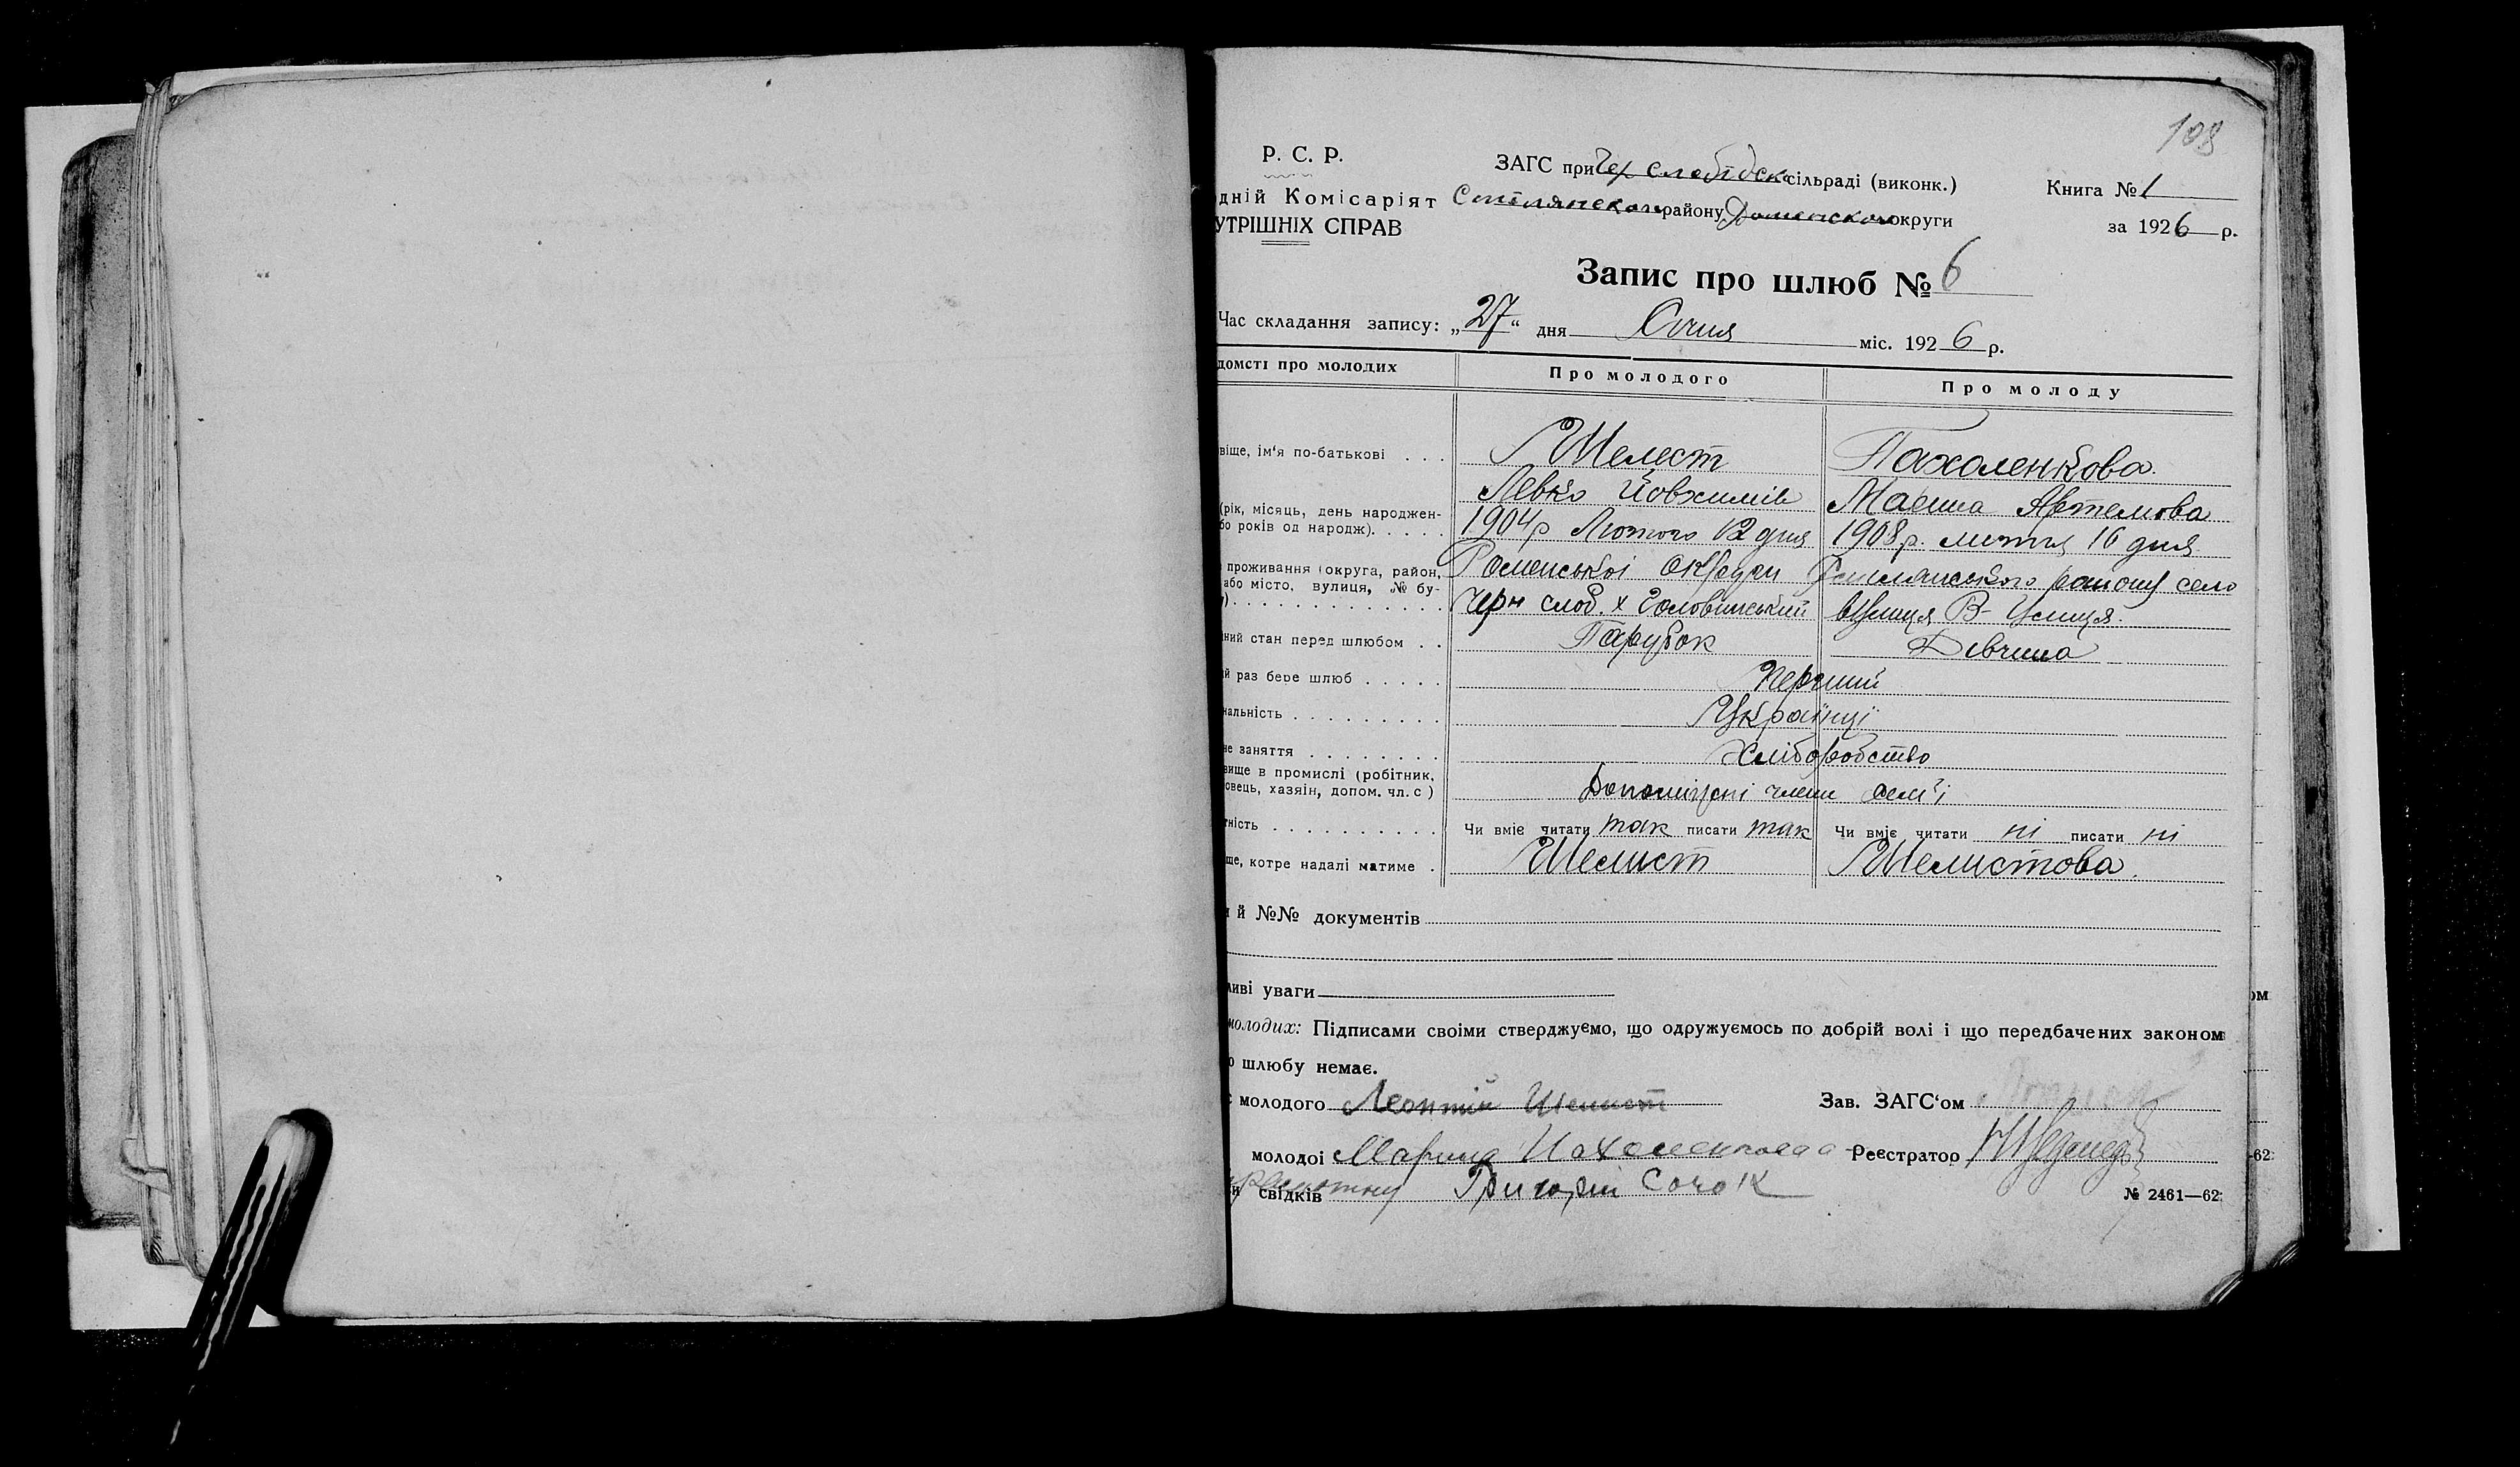 108
Р. С. Р.
ЗАГС при Чер слобідск сільраді (виконк.)
Книга № 1
дній Комісаріят
районуРоменскоі округи
за 1926 р.
УТРІШНІХ СПРАВ
Запис про шлюб № 6
Час складання запису: „27“ дня Січня міс. 1926 р.
домсті про молодих
Про молодого
Про молоду
віще, ім'я по-батькові . . .
Шелест
Пахоленкова.
Левко Йовхимів
Марина Артемова
(рік, місяць, день народжен-
бо років од народж). . . . .
1904р Лютого 12 дня
1908 р. 16 дня
проживання (округа, район,
або місто, вулиця, № бу-
). . . . . . . . . . . . .
Роменськоі округи
району село
Черн слоб. х Головинський
вулиця В-Улиця.
ний стан перед шлюбом . .
Парубок
Дівчина
й раз бере шлюб . . . . .
Перший
нальність . . . . . . . . .
Українці
не заняття . . . . . . . .
Хліборобство
вище в промислі (робітник,
овець, хазяін, допом. чл. с )
Допоміжні члени семʼі
тність . . . . . . . . . .
Чи вміє читати так писати так
Чи вміє читати ні писати ні
ще, котре надалі матиме .
Шелист
Шелистова.
й №№ документів
ливі уваги
молодих: Підписами своіми стверджуємо, що одружуємось по добрій волі і що передбачених законом
о шлюбу немає.
молодого Леонтій Шелист
Зав. ЗАГС'ом
молодоі Марина Пахоленкова
Реєстратор
и свідків Григорій Сочок
№ 2461—62
ом
-62